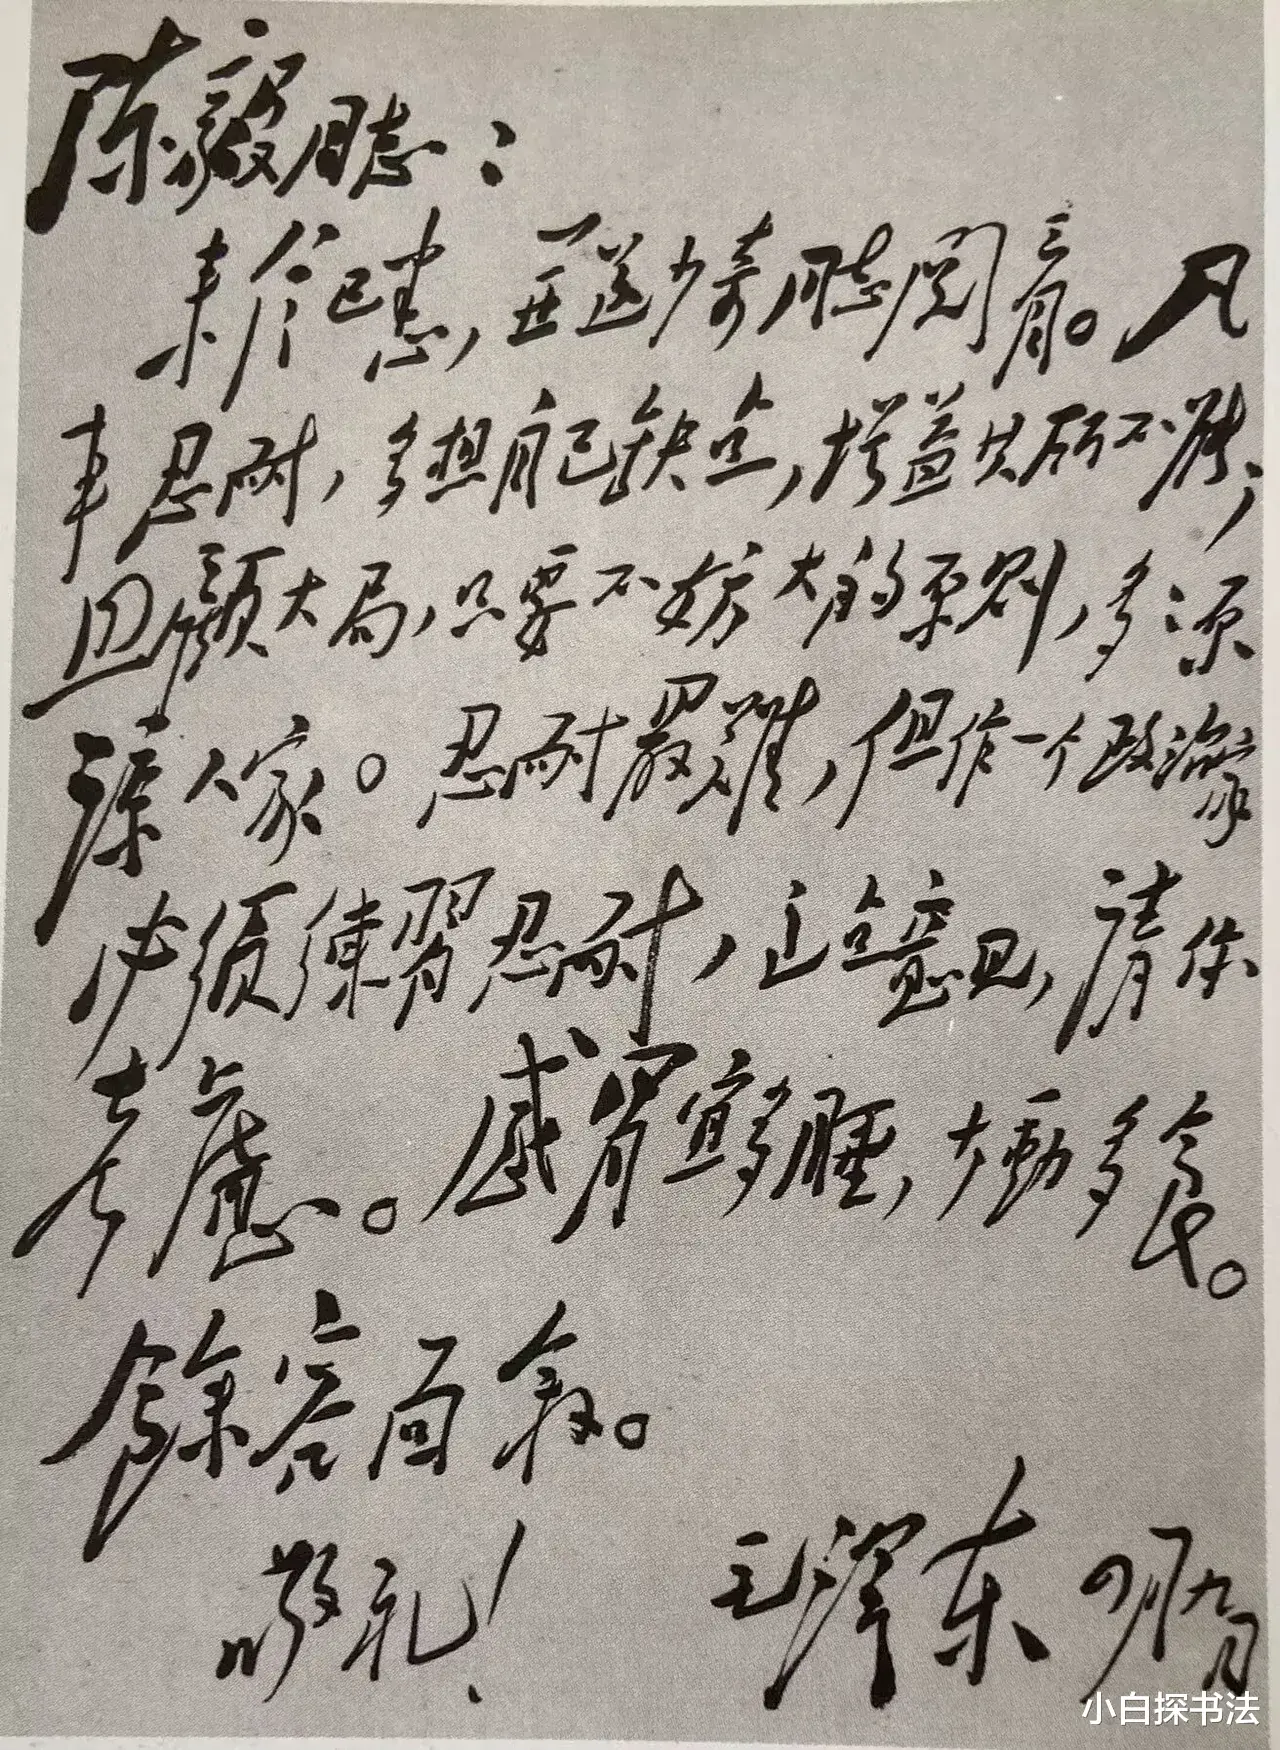 陈毅同志：
来信已悉，并送少奇同志阅看。凡
事忍耐，多想自己缺点，增益其所不能；
照顾大局，只要不妨大的原则，多多原
谅人家。忍耐最难，但作一个政治家
必须练习忍耐，这点意见，请你
考虑。感冒宜多睡，大勤多食。
馀容面叙。
敬礼！
毛泽东 四月九日
小白探书法